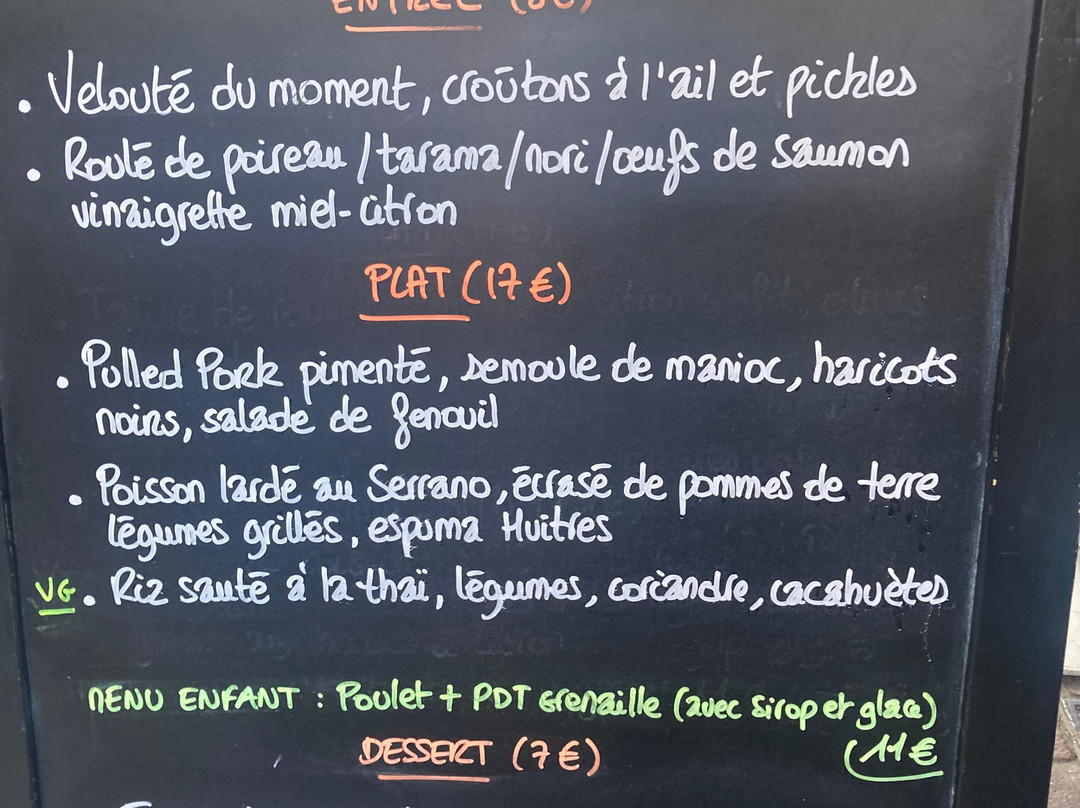 ENTRÉE (8€)
• Velouté du moment, croûtons à l'ail et pickles
• Roulé de poireau / tarama / nori / œufs de saumon
vinaigrette miel-citron
PLAT (17€)
• Pulled Pork pimenté, semoule de manioc, haricots
noirs, salade de fenouil
• Poisson lardé au Serrano, écrasé de pommes de terre
légumes grillés, espuma Huitres
VG • Riz sauté à la thaï, légumes, coriandre, cacahuètes
MENU ENFANT : Poulet + PDT Grenaille (avec Sirop et glace)
(11€
DESSERT (7€)